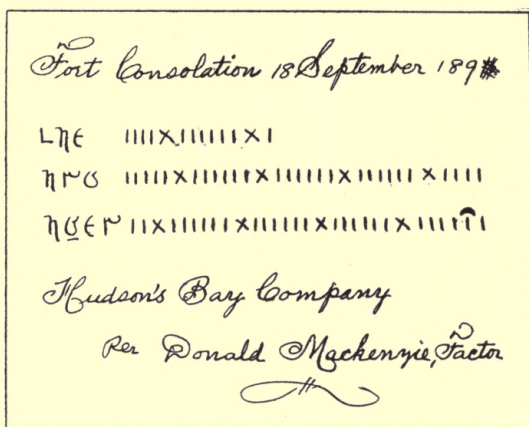 Fort Consolation 18 September 189
IIIIXIIIIIIXI
IIIIIXIIIIIIXIIIIIIXIIIIIIXIIII
IIXIIIIIIXIIIIIIXIIIIIIXIIIIII
Hudson's Bay Company
Per Donald Mackenzie, Factor